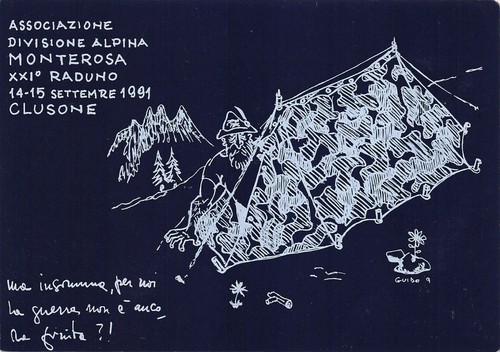 ASSOCIAZIONE
DIVISIONE ALPINA
MONTEROSA
XXIº RADUNO
14-15 SETTEMRE 1991
CLUSONE
ma insomma, per noi
la guerra non è anco_
ra finita ?!
GUIDO 9